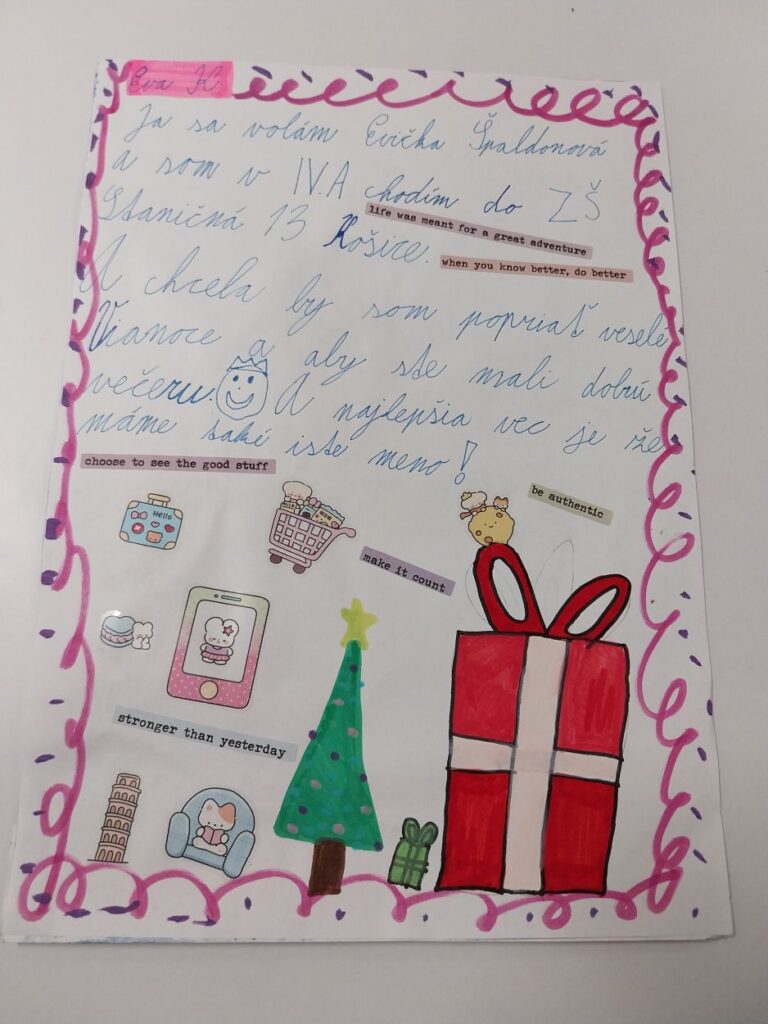 Eva K
Ja sa volám Evička Špaldonová
a som v IV.A chodím do ZŠ
Staničná 13 Košice.
life was meant for a great adventure
when you know better, do better
A chcela by som popriať veselé
Vianoce a aby ste mali dobrú
večeru. A najlepšia vec je že
máme také iste meno!
choose to see the good stuff
be authentic
Hello
make it count
stronger than yesterday